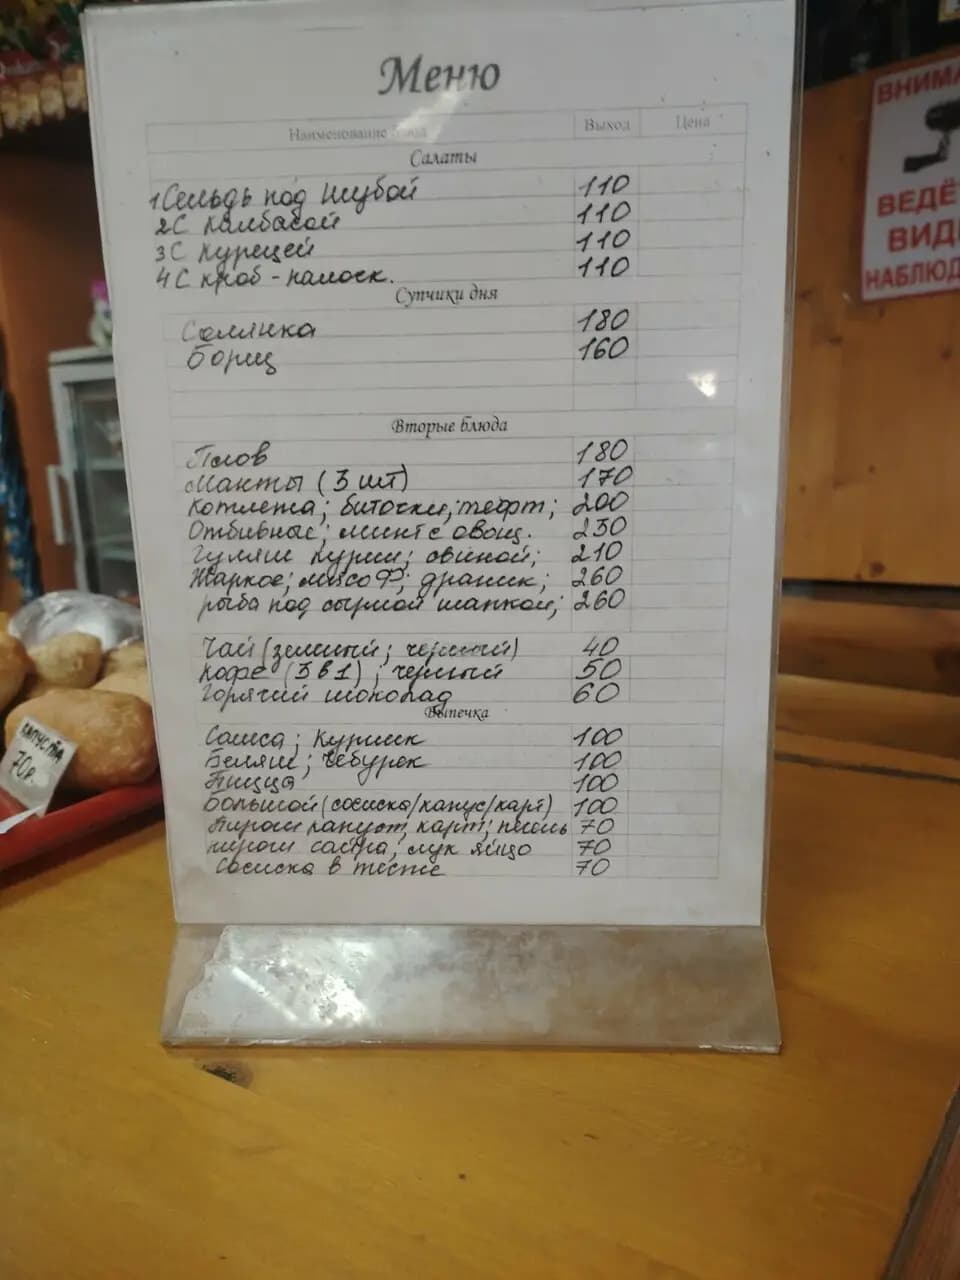 Меню
Наименование блюда Выход Цена
Салаты
1 Сельдь под Шубой 110
2 С Калбасой 110
3 С Курецей 110
4 С кроб-палоск. 110
Супчики дня
Солянка 180
Борщ 160
Вторые блюда
Плов 180
Манты (3 шт) 170
Котлета; биточки; тефт; 200
Отбивные; минт с овощ. 230
Гуляш курин; свиной; 210
Жаркое; мясо Ф; драник; 260
рыба под сырной шапкой; 260
Чай (зеленый; черный) 40
Кофе (3 в 1); черный 50
Горячий шоколад 60
Выпечка
Самса; Курник 100
Беляш; Чебурек 100
Пицца 100
Большой (сосиска/капус/карт) 100
Пирож капуст, карт; 70
пирож сайра; лук яйцо 70
Сосиска в тесте 70
КАПУСТА
70р.
ВНИМА
ВЕДЁ
ВИД
НАБЛЮД